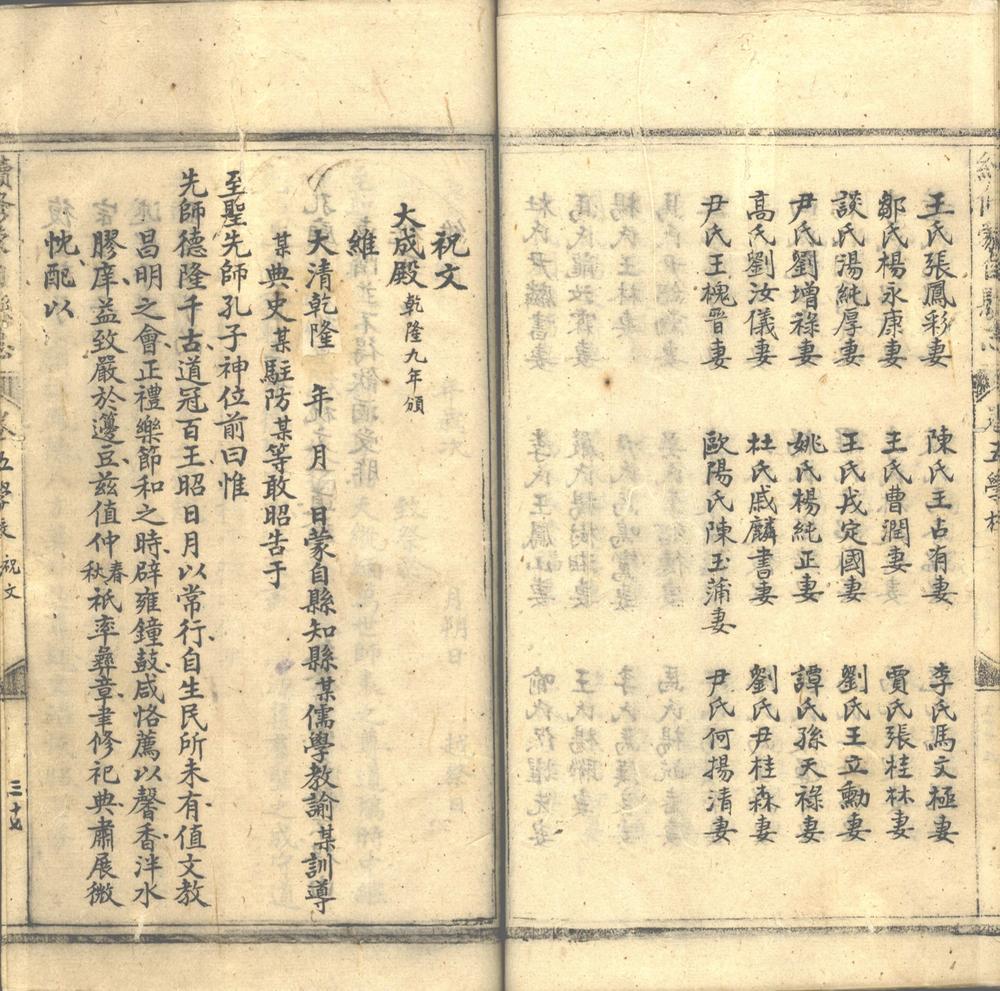 王氏張鳳彩妻 陳氏王占有妻 李氏馮文極妻
鄒氏楊永康妻 王氏曹潤妻 賈氏張桂林妻
談氏湯純厚妻 王氏戎定國妻 劉氏王立勳妻
尹氏劉增祿妻 姚氏楊純正妻 譚氏孫天祿妻
高氏劉汝儀妻 杜氏戚麟書妻 劉氏尹桂森妻
尹氏王槐晉妻 歐陽氏陳玉蒲妻 尹氏何揚清妻
祝文
大成殿 乾隆九年頒
維
大清乾隆 年 月 日蒙自縣知縣某儒學教諭某訓導
某典史某駐防某等敢昭告于
至聖先師孔子神位前曰惟
先師德隆千古道冠百王昭日月以常行自生民所未有值文教
昌明之會正禮樂節和之時辟雍鐘鼓咸恪薦以馨香泮水
膠庠益致嚴於籩豆茲值仲春秋祇率彝章聿修祀典肅展微
忱配以
卷五學校 祝文 三十七